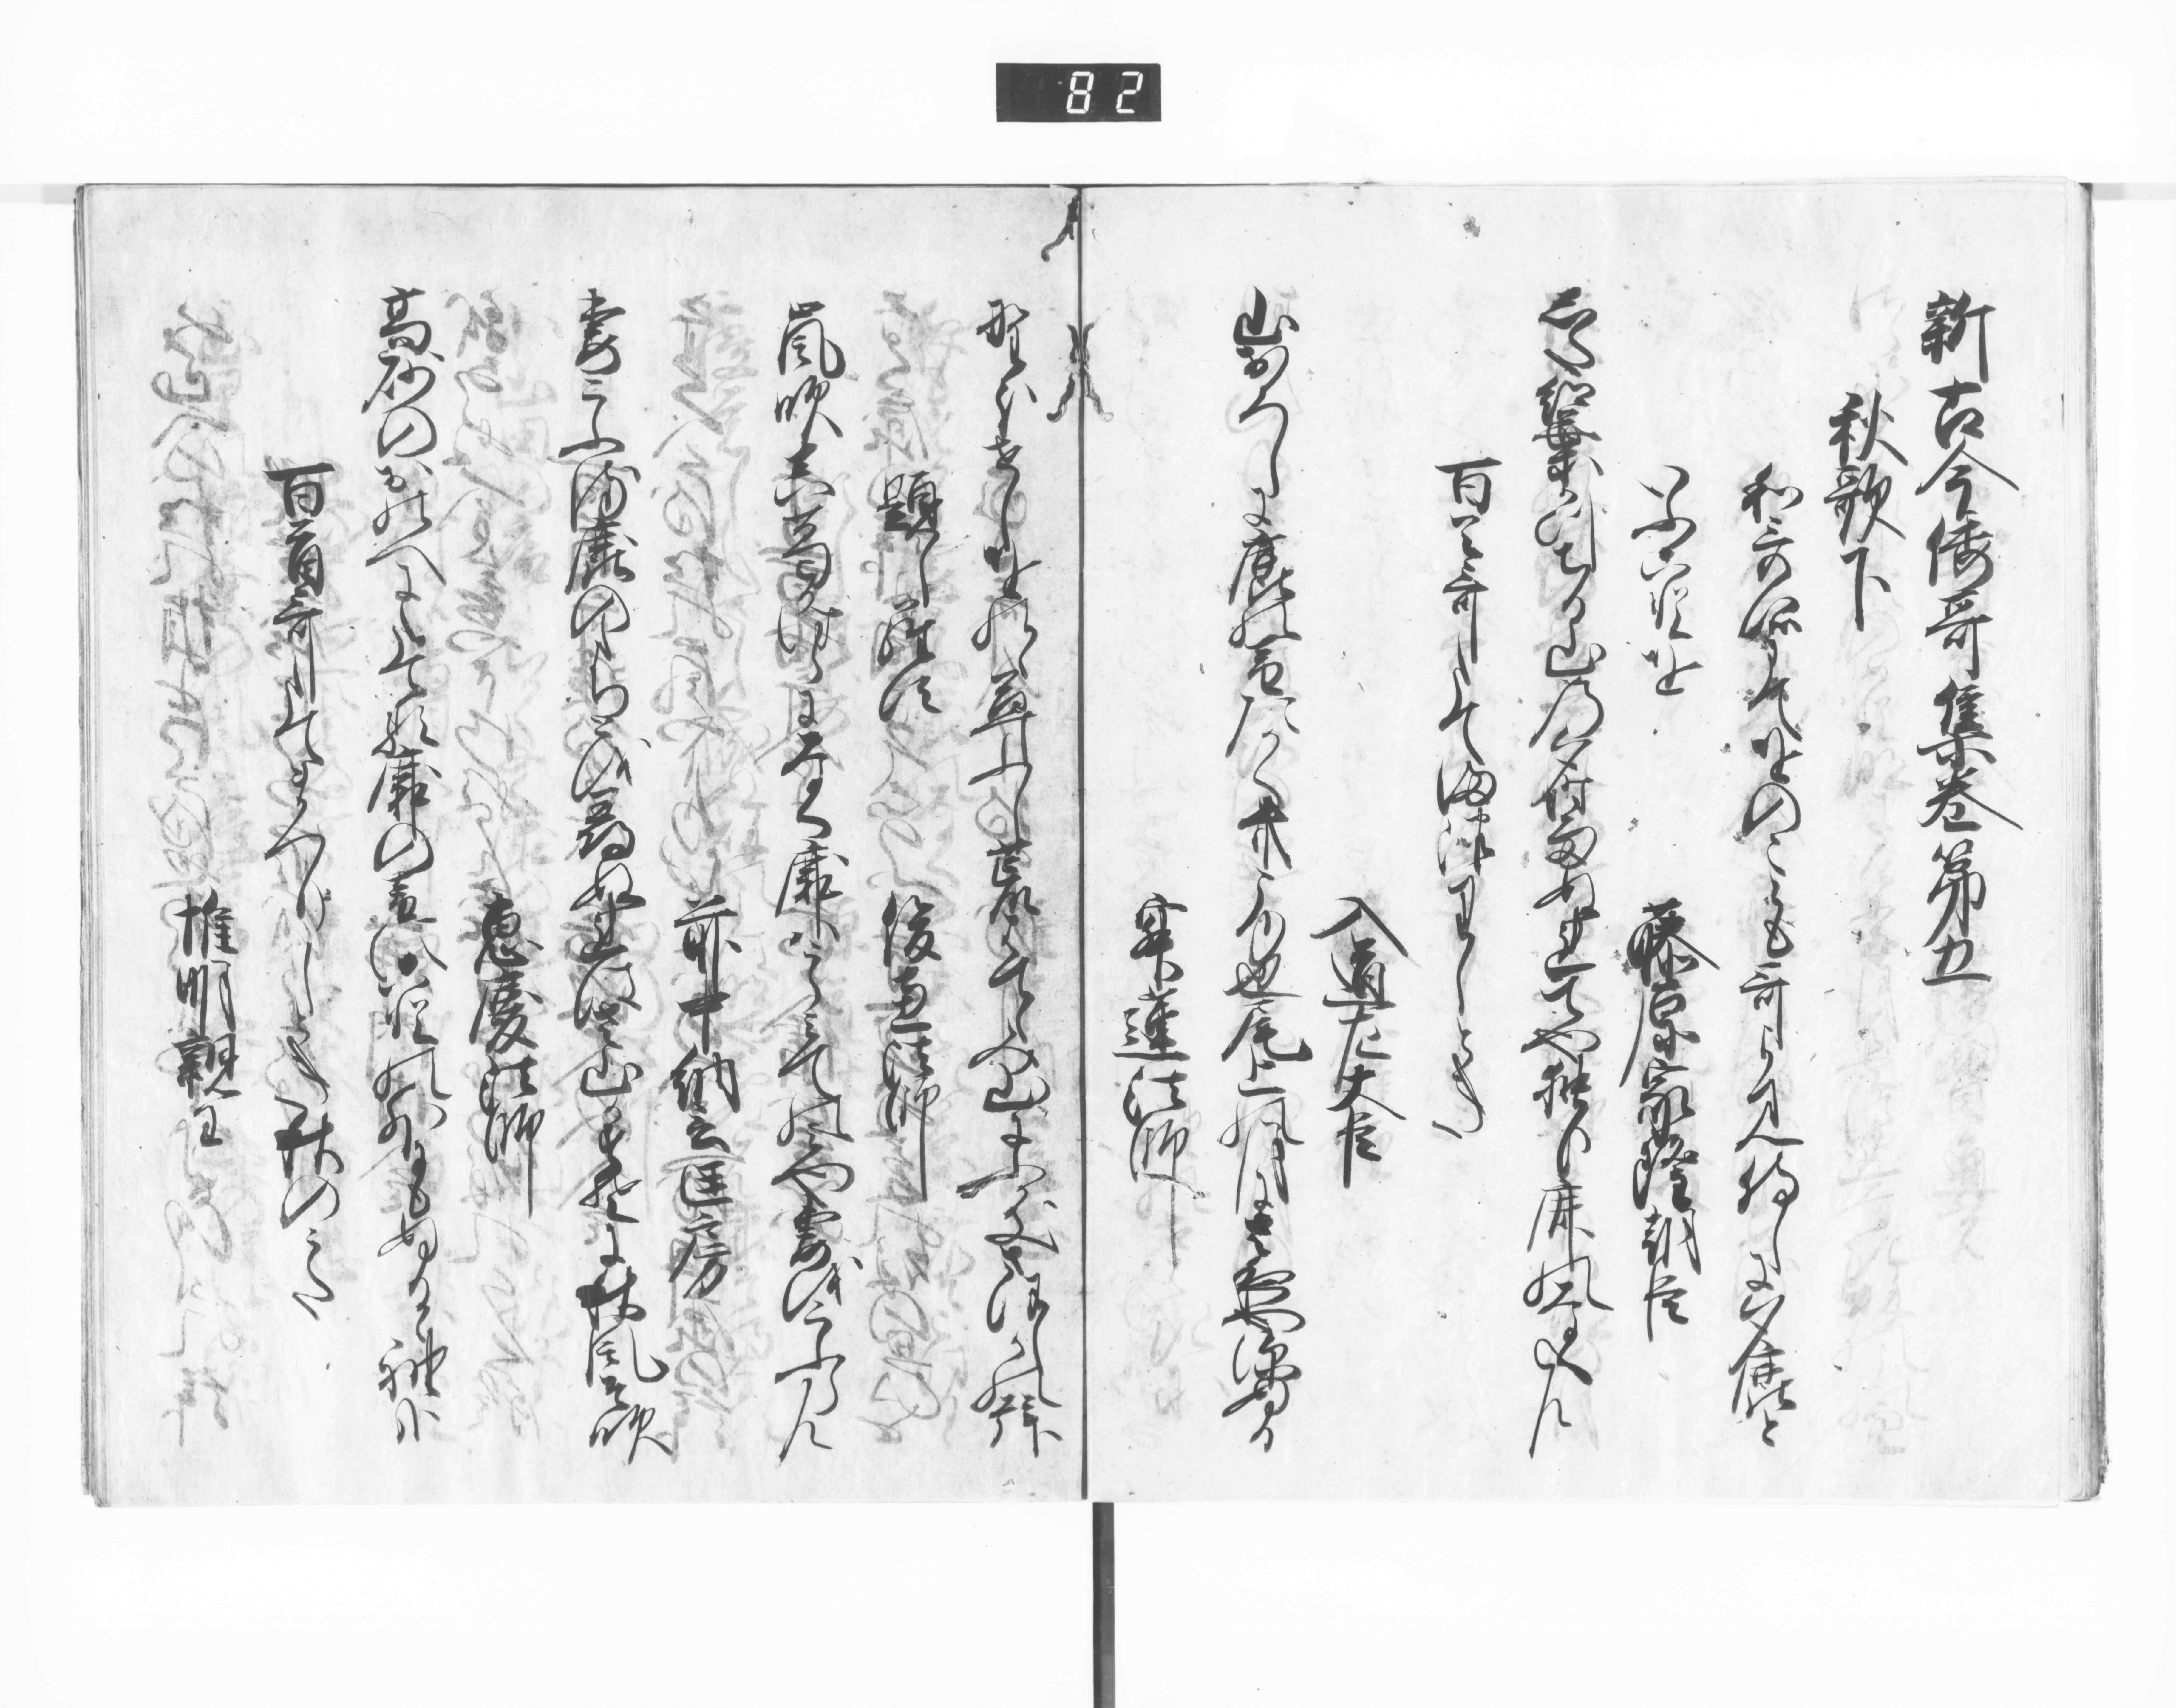 82
新古今倭哥集巻第五
秋歌下
和哥所にてをのこも哥よみ侍しに夕鹿と
いふ心を
藤原家隆朝臣
した紅葉かつちる山の夕時雨ぬれてや独り鹿の鳴らん
百首哥しててまつりし とき
入道左大臣
山おろしに鹿の音たかく聞ゆ也尾上の月にさ夜や深ぬる
寂蓮法師
野分せし小野の草ふし荒はててみ山にふかきさほしかの聲
題しらす
俊恵法師
嵐吹真葛か原になく鹿はうらみてのみや妻をこふらん
前中納言匡房
妻こふる鹿のたちとを尋ぬれはさ山かすそに秋風そ吹
恵慶法師
高砂の尾のへにたてる鹿の音にことの外にもぬるる袖哉
百首哥たてまつりしとき秋のうた
惟明親王